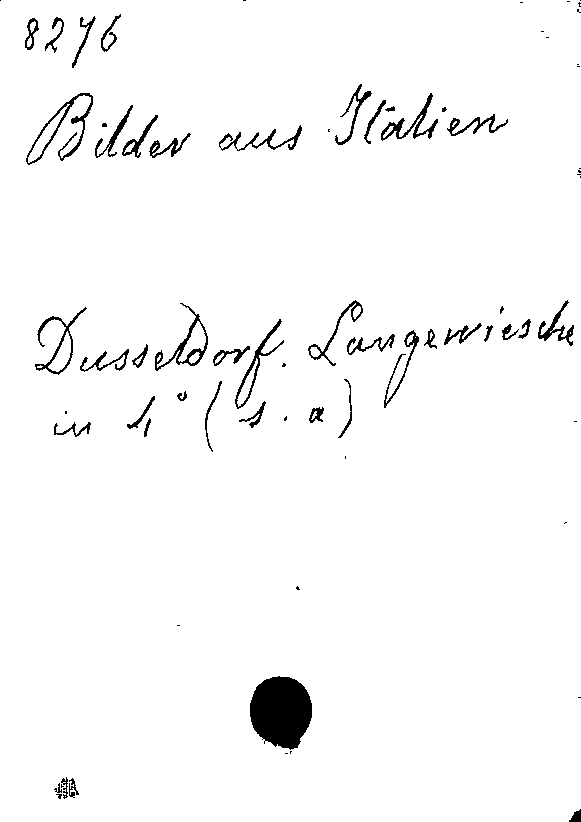 8276
Bilder aus Italien
Dusseldorf. Langewiesche
in 4° (s. a)